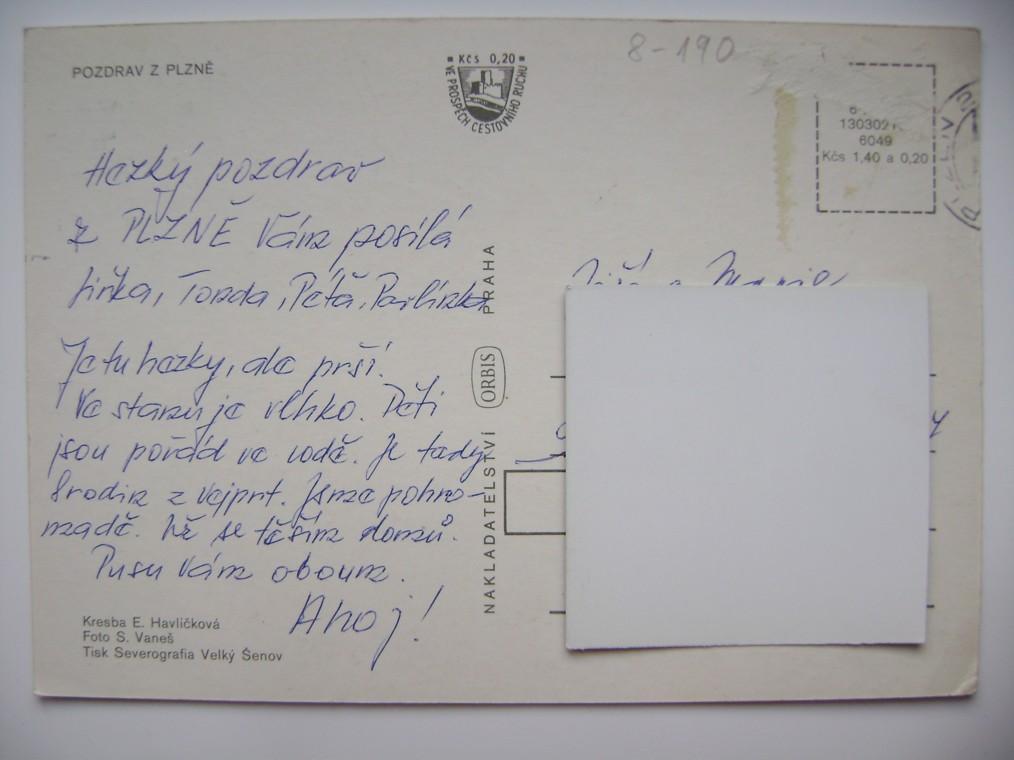 POZDRAV Z PLZNĚ
Kčs 0,20
VE PROSPĚCH CESTOVNÍHO RUCHU
8-190
130302
6049
Kčs 1,40 a 0,20
Hezký pozdrav
z PLZNĚ Vám posílá
Jiřka, Tonda, Péťa, Pavlínka
Je tu hezky, ale prší.
Ve stanu je vlhko. Děti
jsou pořád ve vodě. Je tady
8 rodin z Vejprt. Jsme pohro-
madě. Už se těším domů.
Pusu Vám oboum.
Ahoj!
NAKLADATELSTVÍ ORBIS PRAHA
Kresba E. Havlíčková
Foto S. Vaneš
Tisk Severografia Velký Šenov